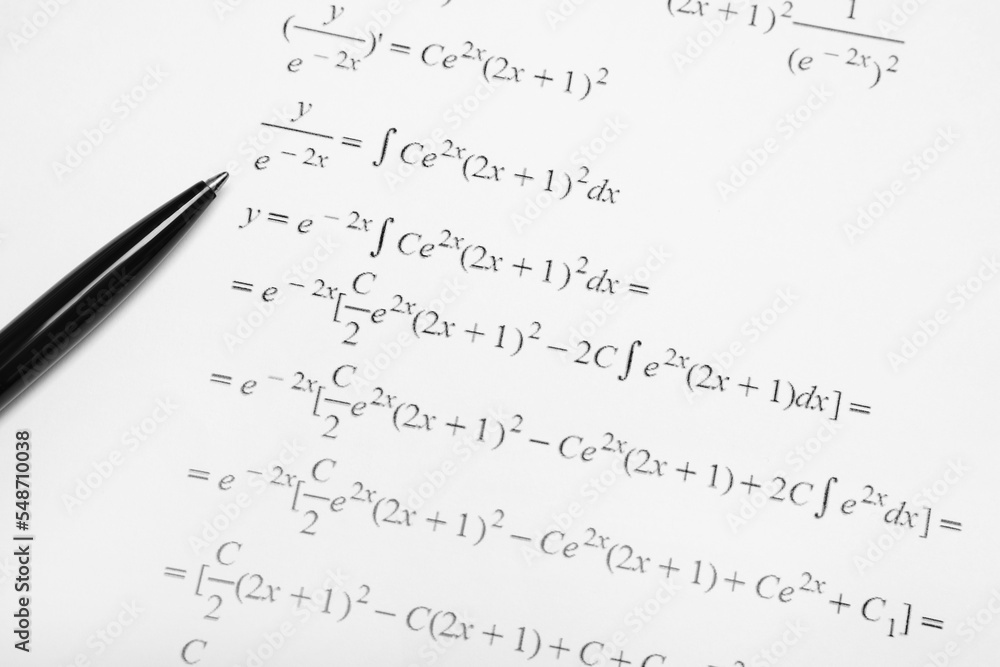 (2x + 1)² 1/(e^(−2x))²
(y/e^(−2x))' = Ce^(2x)(2x + 1)²
y/e^(−2x) = ∫ Ce^(2x)(2x + 1)²dx
y = e^(−2x) ∫ Ce^(2x)(2x + 1)²dx =
= e^(−2x)[C/2 e^(2x)(2x + 1)² − 2C ∫ e^(2x)(2x + 1)dx] =
= e^(−2x)[C/2 e^(2x)(2x + 1)² − Ce^(2x)(2x + 1) + 2C ∫ e^(2x)dx] =
= e^(−2x)[C/2 e^(2x)(2x + 1)² − Ce^(2x)(2x + 1) + Ce^(2x) + C₁] =
= [C/2 (2x + 1)² − C(2x + 1) + C + C
C
Adobe Stock | #548710038